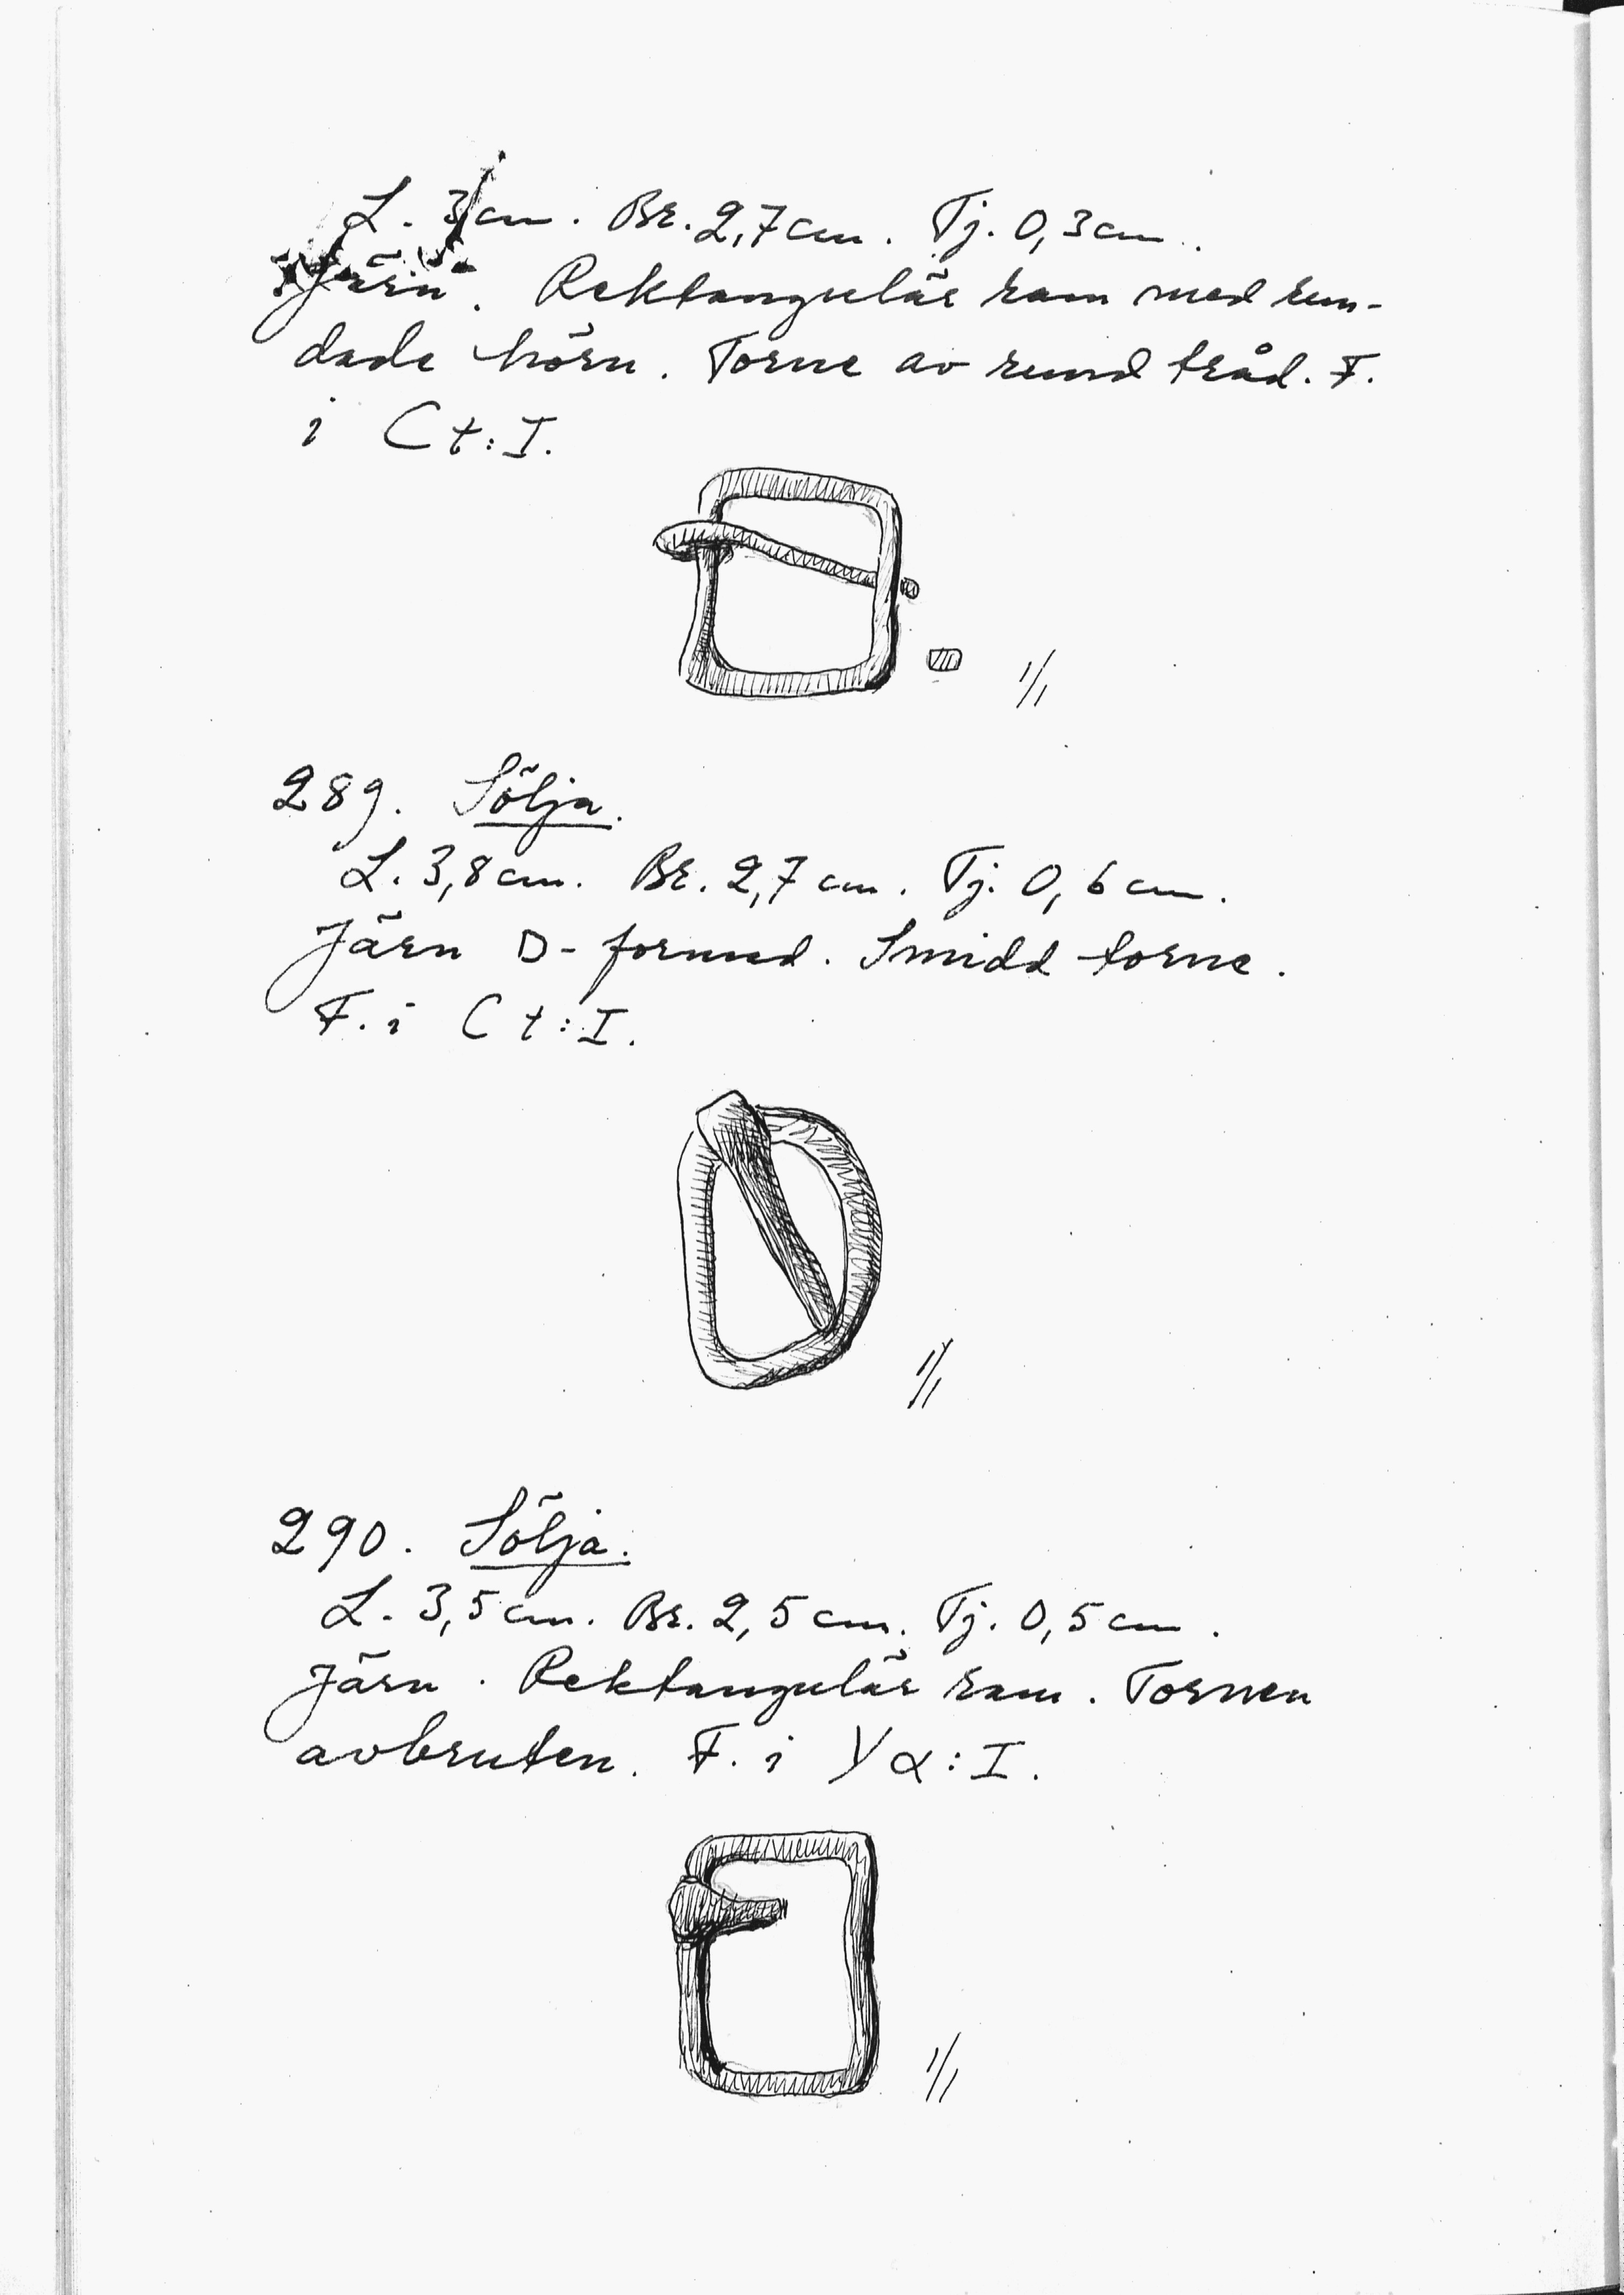 L. 3 cm. Br. 2,7 cm. Tj. 0,3 cm.
Järn. Rektangulär ram med run-
dade hörn. Torne av rund tråd. F.
i C t:I.
1/1
289. Sölja.
L. 3,8 cm. Br. 2,7 cm. Tj. 0,6 cm.
Järn D-formad. Smidd torne.
F. i C t:I.
1/1
290. Sölja.
L. 3,5 cm. Br. 2,5 cm. Tj. 0,5 cm.
Järn. Rektangulär ram. Tornen
avbruten. F. i Y α:I.
1/1